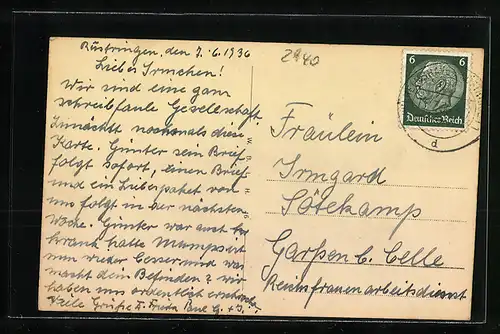 Rüstringen, den 7.6.1936
Liebes Irmchen!
Wir sind eine ganz
schreibfaule Gesellschaft.
Zunächst nochmals diese
Karte. Günter sein Brief
folgt sofort, einen Brief
und ein Liebespaket von
uns folgt in der nächsten
Woche. Günter war auch
krank hatte Mumps ist
nun wieder besser und was
macht dein Befinden? Wir
haben uns ordentlich
Viele Grüße
2940
Fräulein
Irmgard
Sötekamp
Garßen b. Celle
Reichsfrauenarbeitsdienst
6 6
Deutsches Reich
d